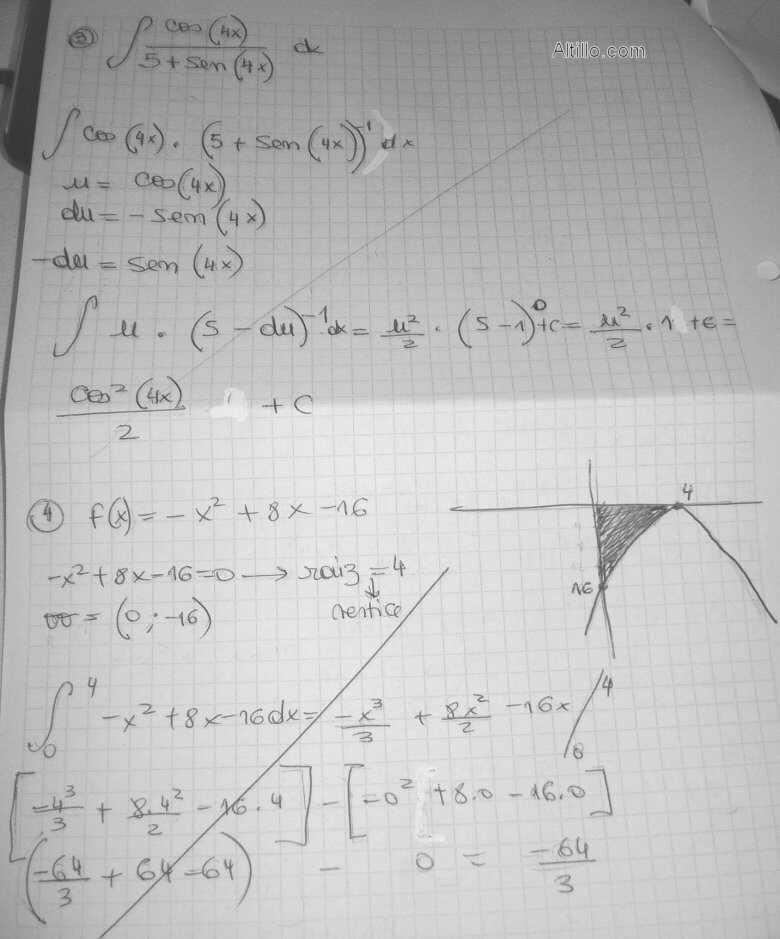 Altillo.com
③ ∫ cos(4x) / 5 + sen(4x) dx
∫ cos(4x) . (5 + sen(4x))⁻¹ dx
u = cos(4x)
du = - sen(4x)
-du = sen(4x)
∫ u . (5 - du)⁻¹ dx = u²/2 . (5 - 1)⁰ + c = u²/2 . 1 + c =
cos²(4x) / 2 + C
④ f(x) = - x² + 8x - 16
-x² + 8x - 16 = 0 → raiz = 4
vertice
= (0 ; -16)
4
16
∫₀⁴ -x² + 8x - 16 dx = -x³/3 + 8x²/2 - 16x /₀⁴
[-4³/3 + 8.4²/2 - 16.4] - [-0² + 8.0 - 16.0]
(-64/3 + 64 - 64) - 0 = -64/3